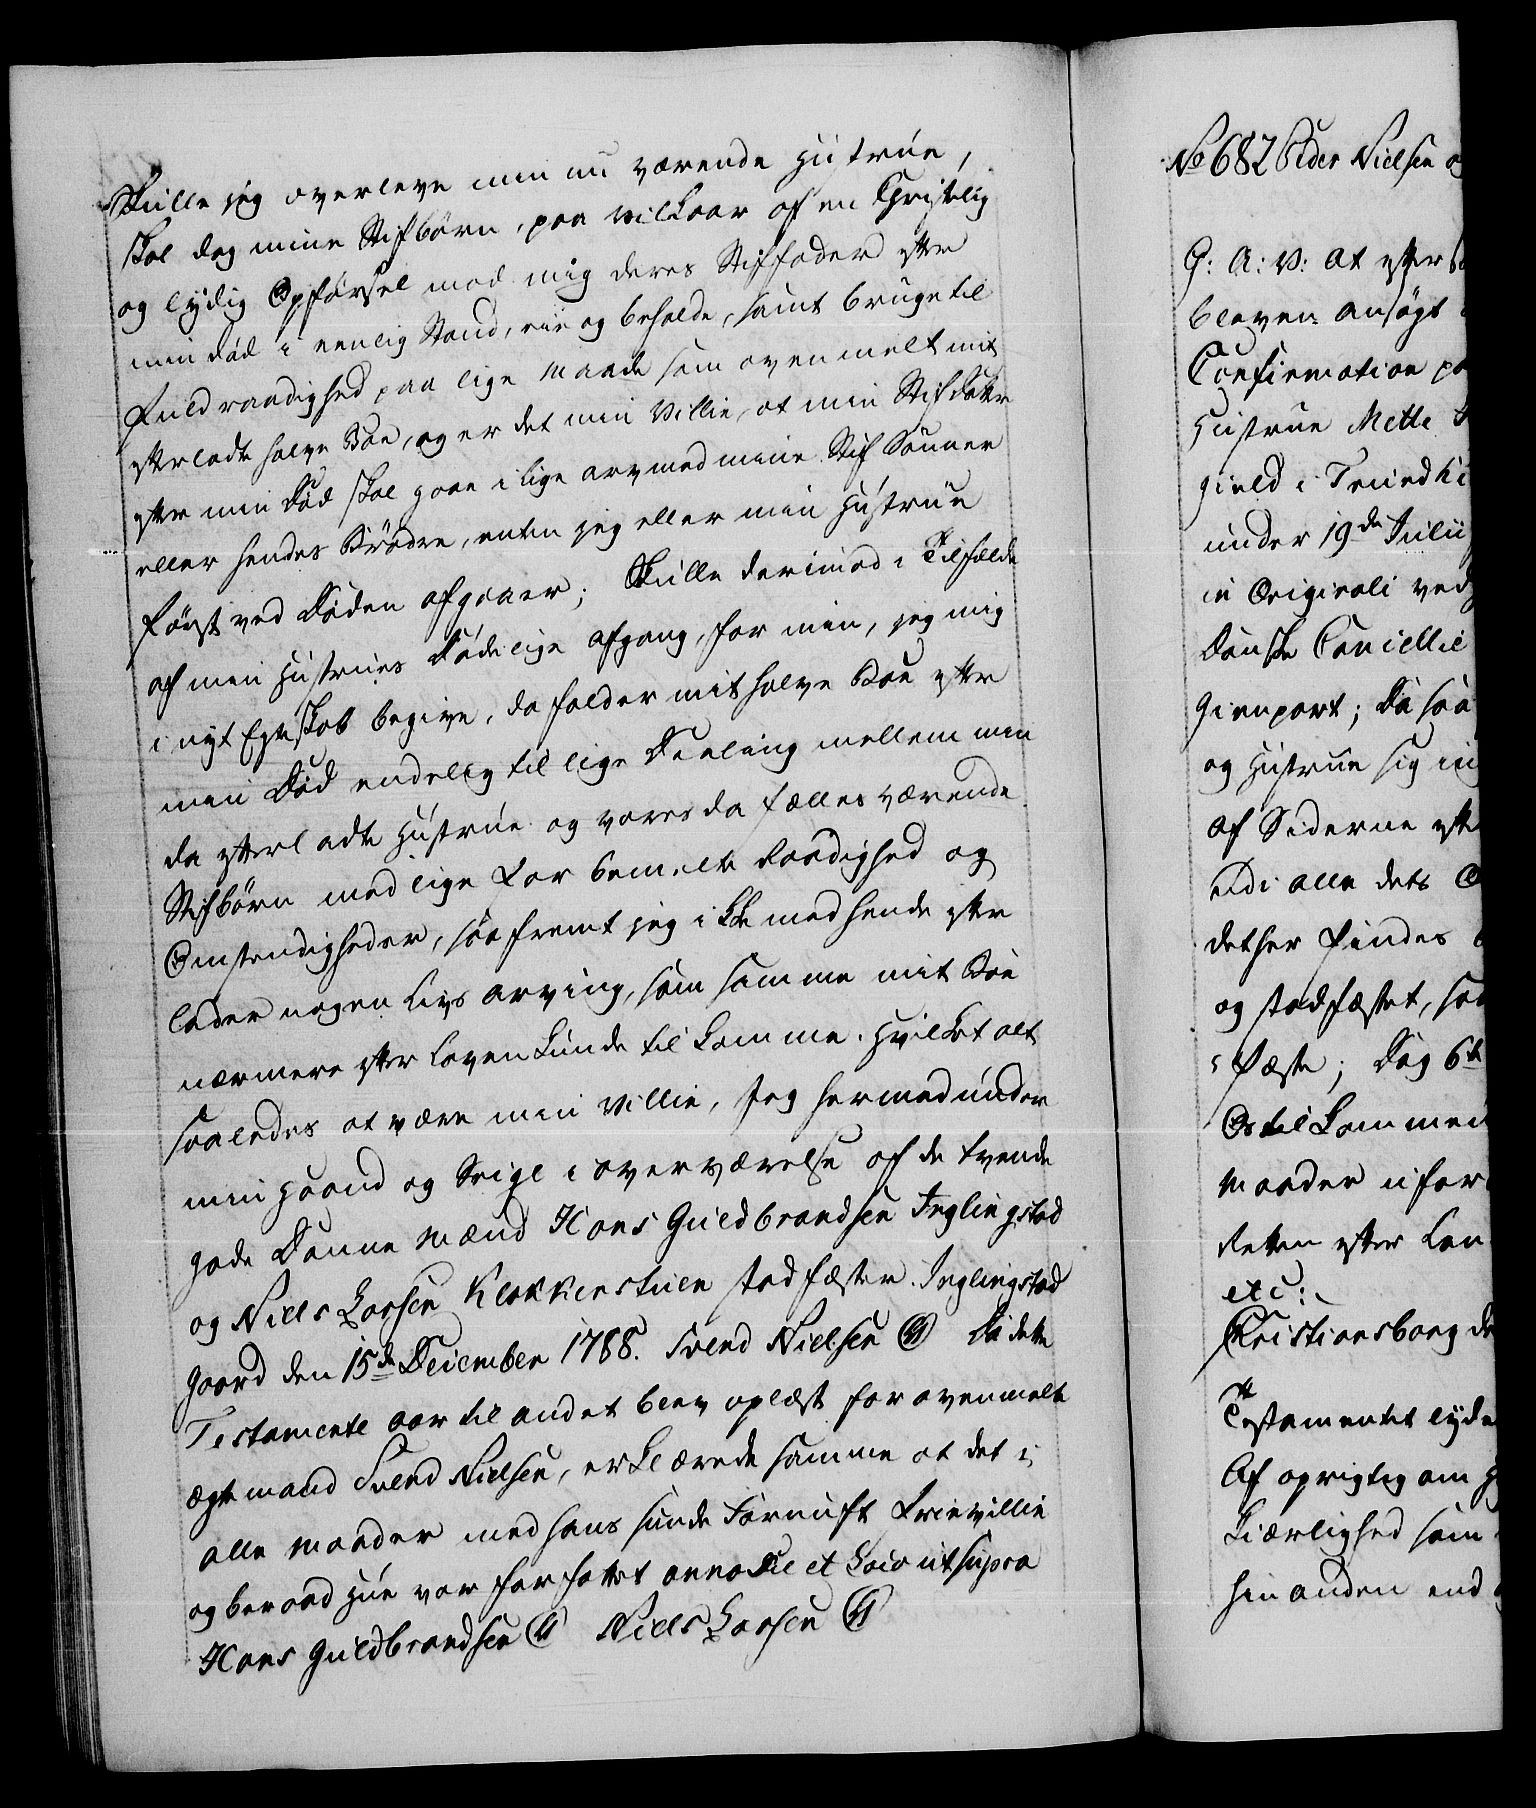 Skulle jeg overleve min nu værende Hustrue,
skal dog mine Stifbørn, paa vilkaar af en Christelig
og lydig Opførsel mod mig deres Stiffader efter
min död i eenlig Stand, eie og beholde, samt bruge til
Fuldraadighed paa lige maade som ovenmelt mit
efterladte halve Boe, og er det min Villie, at min Stifdatter
efter min Död skal gaae i lige arv med mine Stif Sønner
eller hendes Brödre, enten jeg eller min Hustrue
först ved Döden afgaaer; Skulle derimod i Tilfælde
af min Hustrues Dödelige afgang, for min, jeg mig
i nyt Egteskab begive, da falder mit halve Boe efter
min Död endelig til lige Deeling mellem min
da efterladte Hustrue og vores da fælles værende
Stifbørn med lige forbemelte Raadighed og
Omstendigheder, saafremt jeg ikke med hende efter
lader nogen Livs arving, som samme mit Boe
nærmere efter Loven kunde tilkomme. Hvilket alt
saaledes at være min Villie, Jeg hermed under
min Haand og Seigl i overværelse af de tvende
gode Danne Mænd Hans Guldbrandsen Inglingstad
og Niels Larsen Klokkerstuen stadfæster. Inglingstad
gaard den 15de Decembr 1788. Svend Nielsen (LS) Da dette
Testamente aar til andet blev oplæst for ovenmelte
ægtemand Svend Nielsen, erklærede samme at det i
alle Maader med hans sunde Fornuft Frievillie
og beraad Hue var forfattet anno Die et Loco ut supra
Hans Guldbrandsen (LS) Niels Larsen (LS)
No 682 Peder Nielsen o
G: A: V: at efter
bleven ansøgt
Confirmation pa
Hustrue Mette
gield i Trindhi
under 19de Julii
in Originali ved
Danske Cancellie
Gienpart; Da saa
og Hustrue sig in
af Siderne efte
udi alle dets
dether findes
og stadfæstet, saa
fæste; Dog 6te
Os tilkommen
Maader ufor
Retten efter Lan
etc:
Christiansborg d
Testamentet lyde
Af oprigtig om
Kiærlighed som
hinanden end